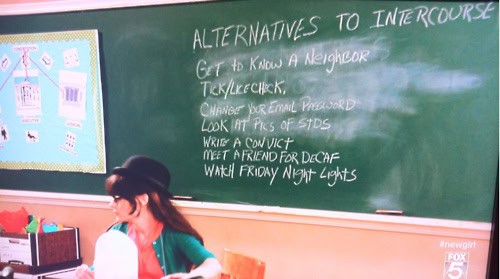 ALTERNATIVES TO INTERCOURSE
GET TO KNOW A NEIGHBOR
TICK/LICE CHECK.
CHANGE YOUR EMAIL PASSWORD
LOOK AT PICS OF STDS
WRITE A CONVICT
MEET A FRIEND FOR DECAF
WATCH FRIDAY NIGHT LIGHTS
#newgirl
FOX
5